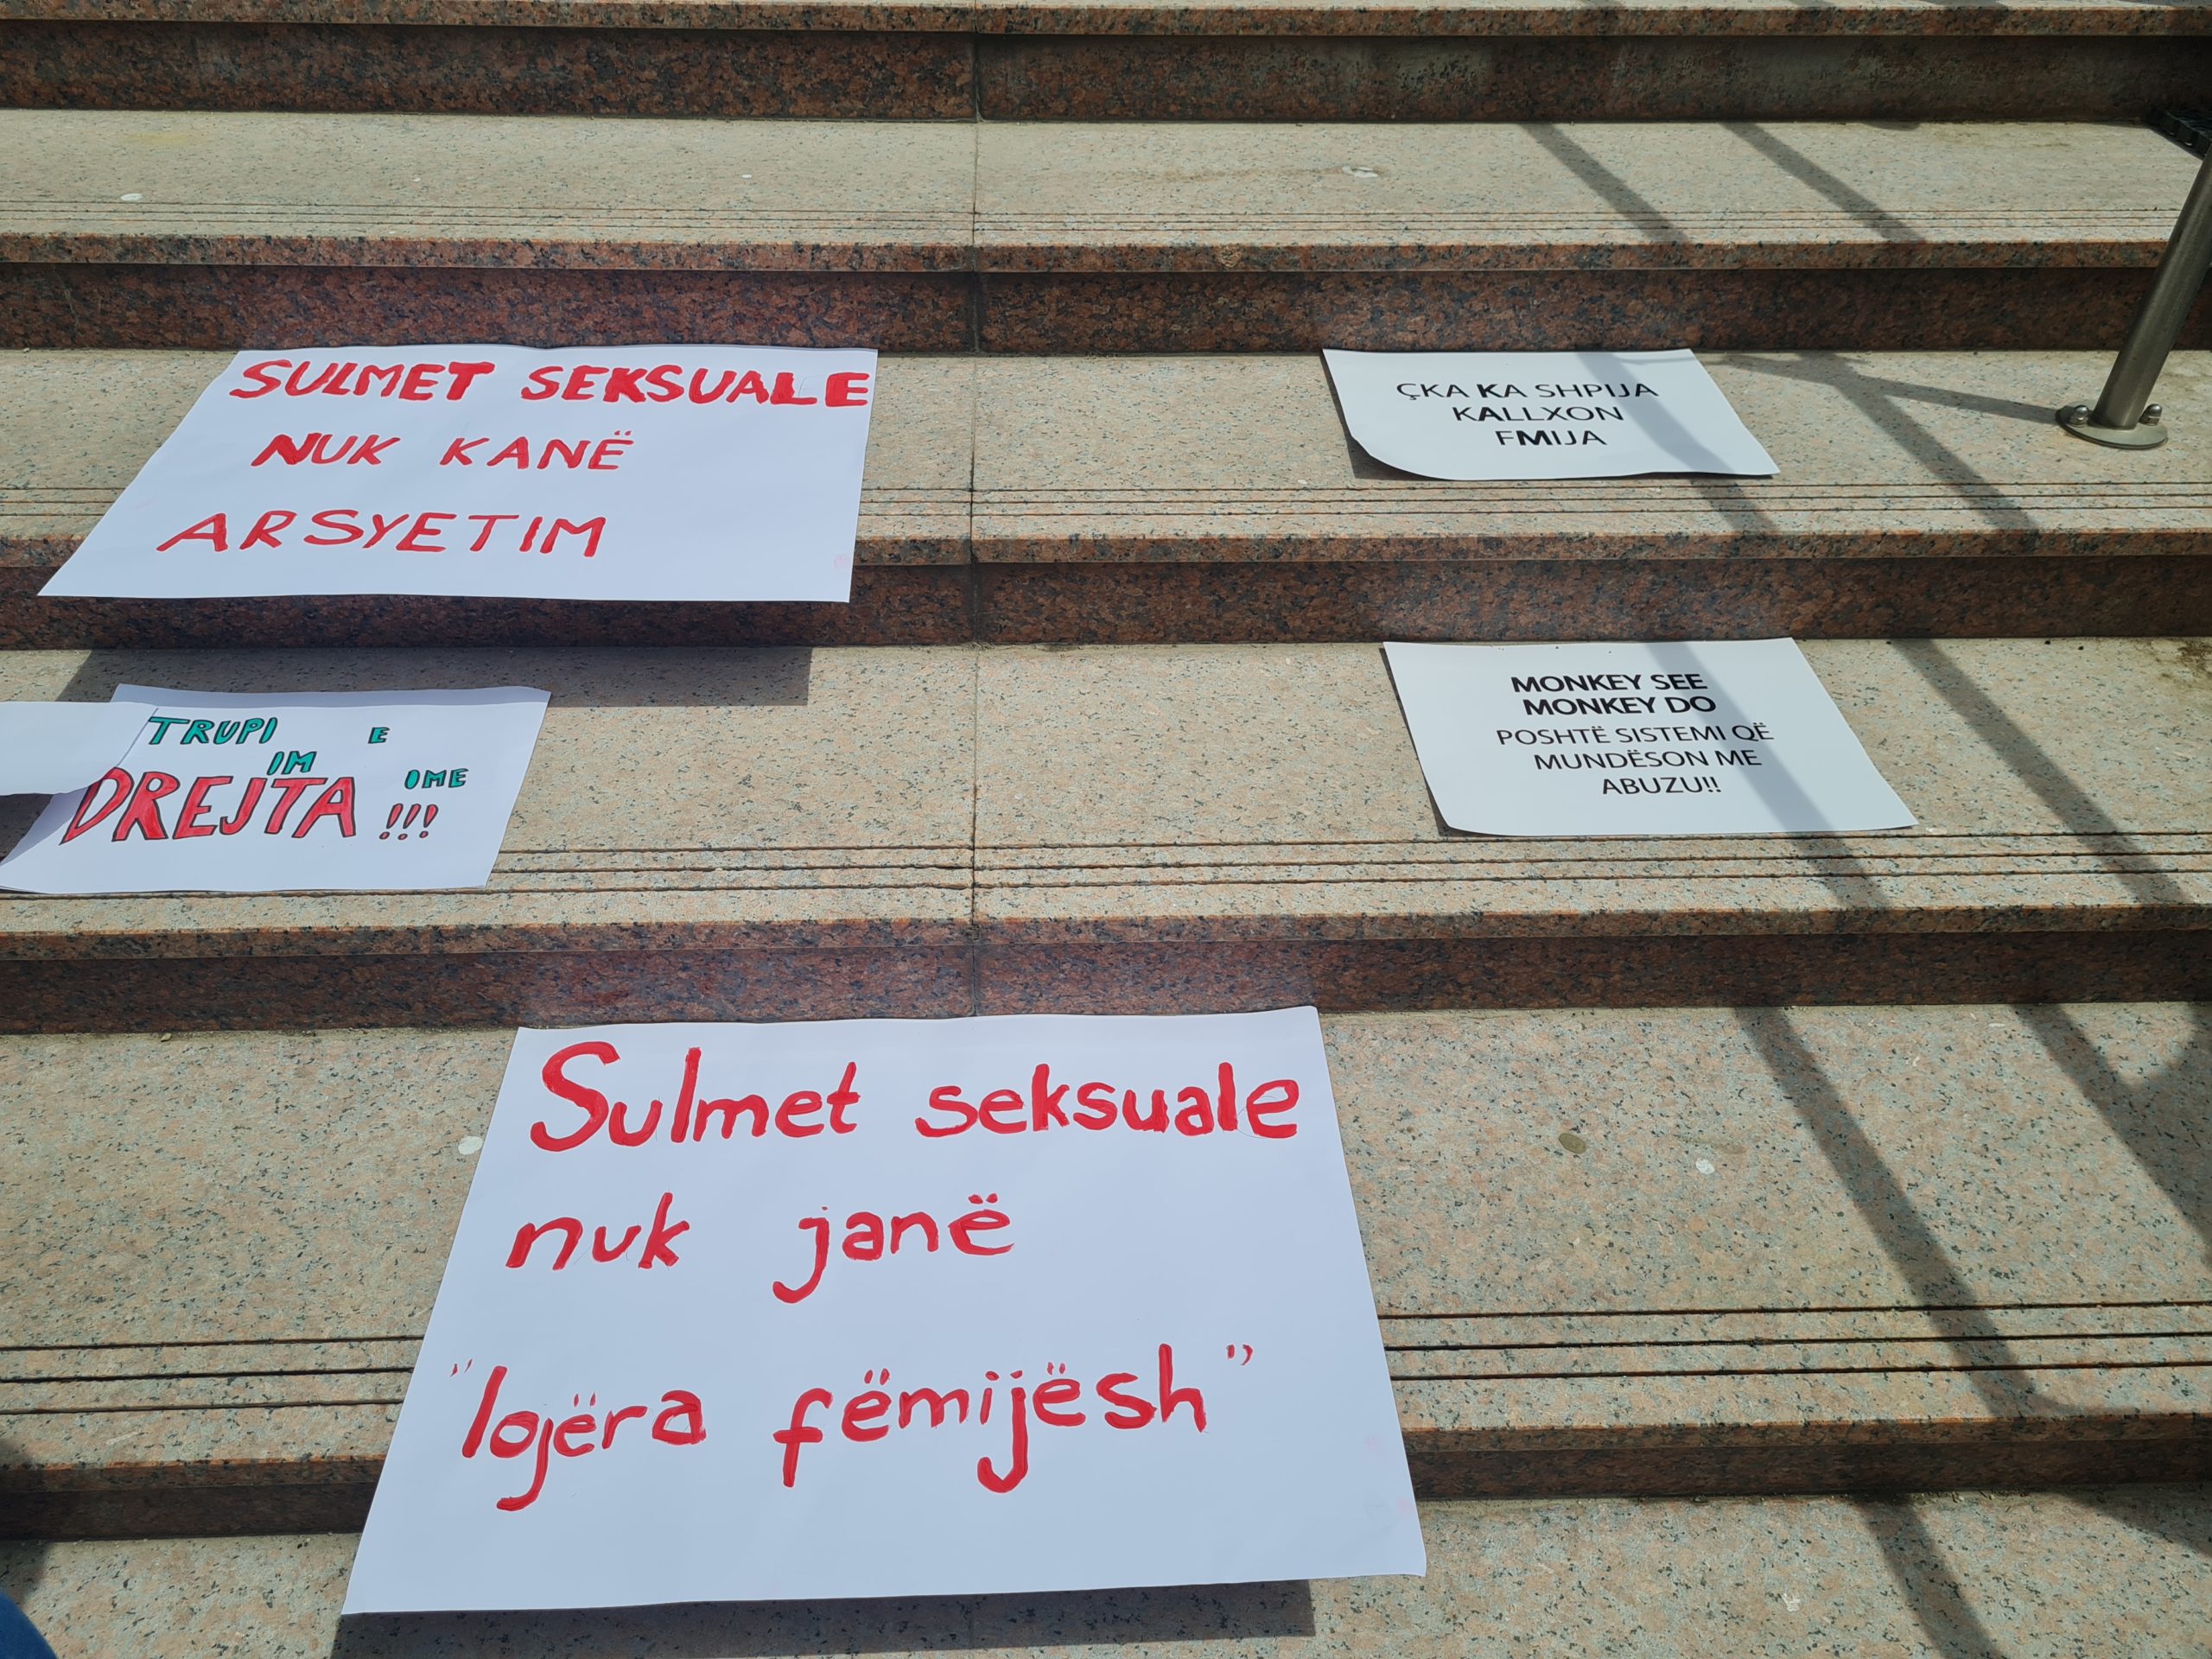 SULMET SEKSUALE
NUK KANË
ARSYETIM
ÇKA KA SHPIJA
KALLXON
FMIJA
TRUPI E
IM OME
DREJTA !!!
MONKEY SEE
MONKEY DO
POSHTË SISTEMI QË
MUNDËSON ME
ABUZU!!
Sulmet seksuale
nuk janë
"lojëra fëmijësh"